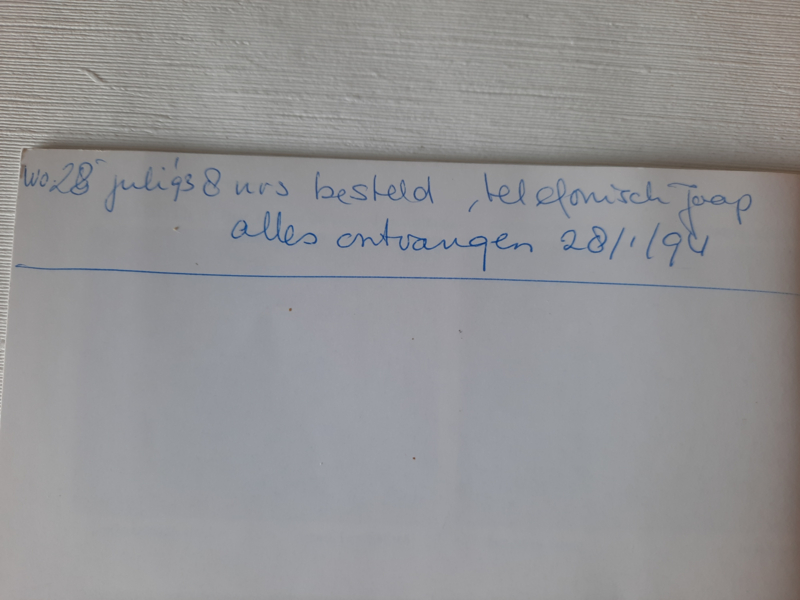 wo 28 juli '93 8 nrs besteld, telefonisch Jaap
alles ontvangen 28/1/94